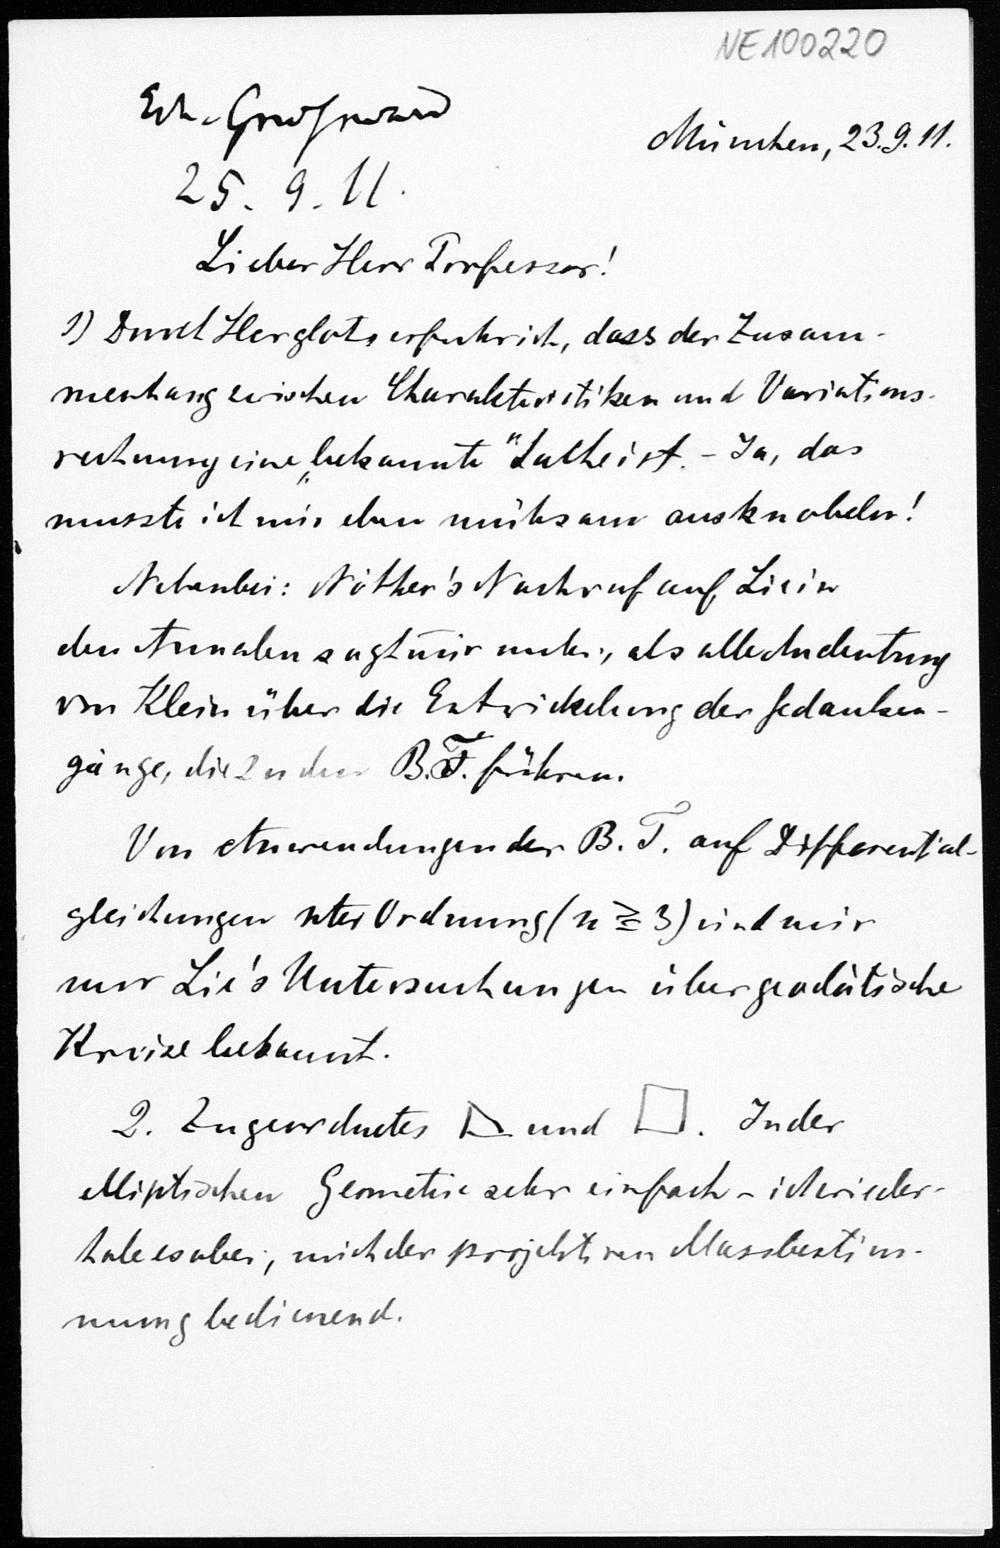 NE100220
München, 23.9.11.
25.9.11.
Lieber Herr Professor!
1) Durch Herglotz erfuhr ich, dass der Zusam-
menhang zwischen Charakteristiken und Variations-
rechnung eine „bekannte" Sache ist. – Ja, das
musste ich mir eben mühsam ausknobeln!
Nebenbei: Nöther's Nachruf auf Lie in
den Annalen sagt mir mehr, als alle Andeutung
von Klein über die Entwickelung der Gedanken-
gänge, die zu den B.T. führen.
Von Anwendungen der B.T. auf Differential-
gleichungen nter Ordnung (n ≧ 3) sind mir
nur Lie's Untersuchungen über geodätische
Kreise bekannt.
2. Zugeordnetes und . In der
elliptischen Geometrie sehr einfach – ich wieder-
hole es aber, mich der projektiven Massbestim-
mung bedienend.